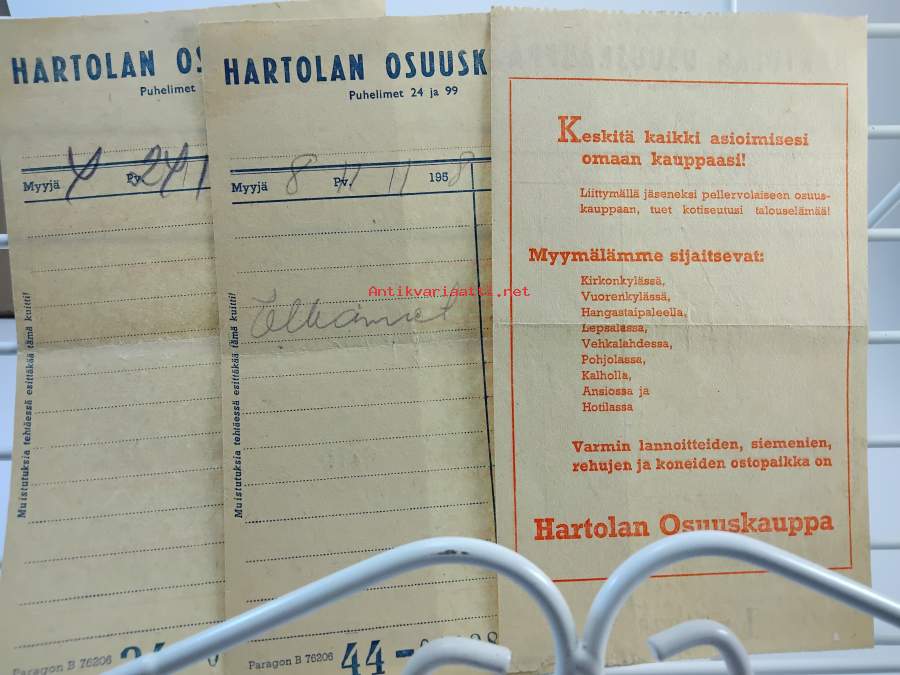 HARTOLAN OS
Puhelimet
Myyjä 4 Pv. 24
Muistutuksia tehtäessä esittäkää tämä kuitti!
Paragon B 76206
HARTOLAN OSUUSK
Puhelimet 24 ja 99
Myyjä 8 Pv. 11 1958
Muistutuksia tehtäessä esittäkää tämä kuitti!
Paragon B 76206 44-
Keskitä kaikki asioimisesi
omaan kauppaasi!
Liittymällä jäseneksi pellervolaiseen osuus-
kauppaan, tuet kotiseutusi talouselämää!
Myymälämme sijaitsevat:
Kirkonkylässä,
Vuorenkylässä,
Hangastaipaleella,
Lepsalassa,
Vehkalahdessa,
Pohjolassa,
Kalholla,
Ansiossa ja
Hotilassa
Varmin lannoitteiden, siemenien,
rehujen ja koneiden ostopaikka on
Hartolan Osuuskauppa
Antikvariaatti.net